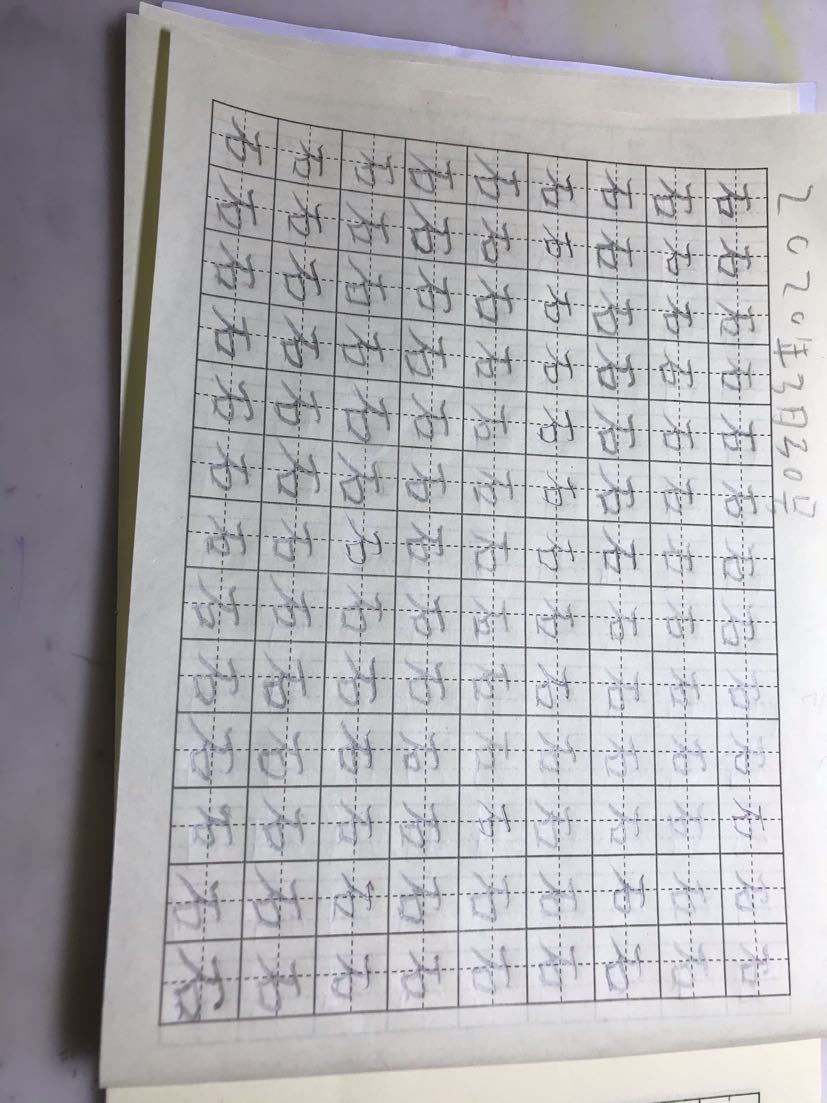 2020年3月30号
石石石石石石石石石石石石石
石石石石石石石石石石石石石
石石石石石石石石石石石石石
石石石石石石石石石石石石石
石石石石石石石石石石石石石
石石石石石石石石石石石石石
石石石石石石石石石石石石石
石石石石石石石石石石石石石
石石石石石石石石石石石石石